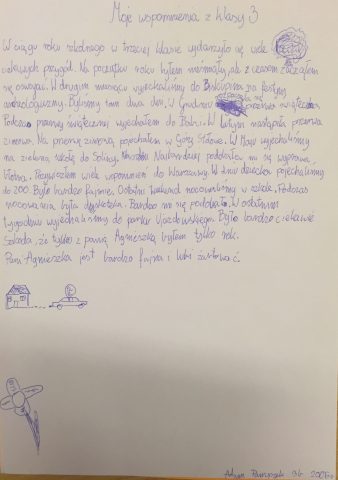 Moje wspomnienia z klasy 3
W ciągu roku szkolnego w trzeciej klasie wydarzyło się wiele
ciekawych przygód. Na początku roku byłem nieśmiały, ale z czasem zacząłem
się oswajać. W drugim miesiącu wyjechaliśmy do Biskupina na festem
archeologiczny. Byliśmy tam dwa dni. W Grudniu zaczęła się przerwa świąteczna.
Podczas przerwy świątecznej wyjechałem do Babci. W lutym nastąpiła przerwa
zimowa. Na przerwę zimową pojechałem w Góry Stołowe. W Maju wyjechaliśmy
na zieloną szkołę do Soliny. Najbardziej podobała mi się wyprawa,
Przywiozłem wiele wspomnień do Warszawy. W dniu dziecka pojechaliśmy
do ZOO. Było bardzo fajnie. Ostatni weekend nocowaliśmy w szkole. Podczas
nocowania była dyskoteka. Bardzo mi się podobało. W ostatnim
tygodniu wyjechaliśmy do parku Ujazdowskiego. Było bardzo ciekawie
Szkoda, że tylko z panią Agnieszką byłem tylko rok.
Pani Agnieszka jest bardzo fajna i lubi żartować.
Adam 3b 2006r